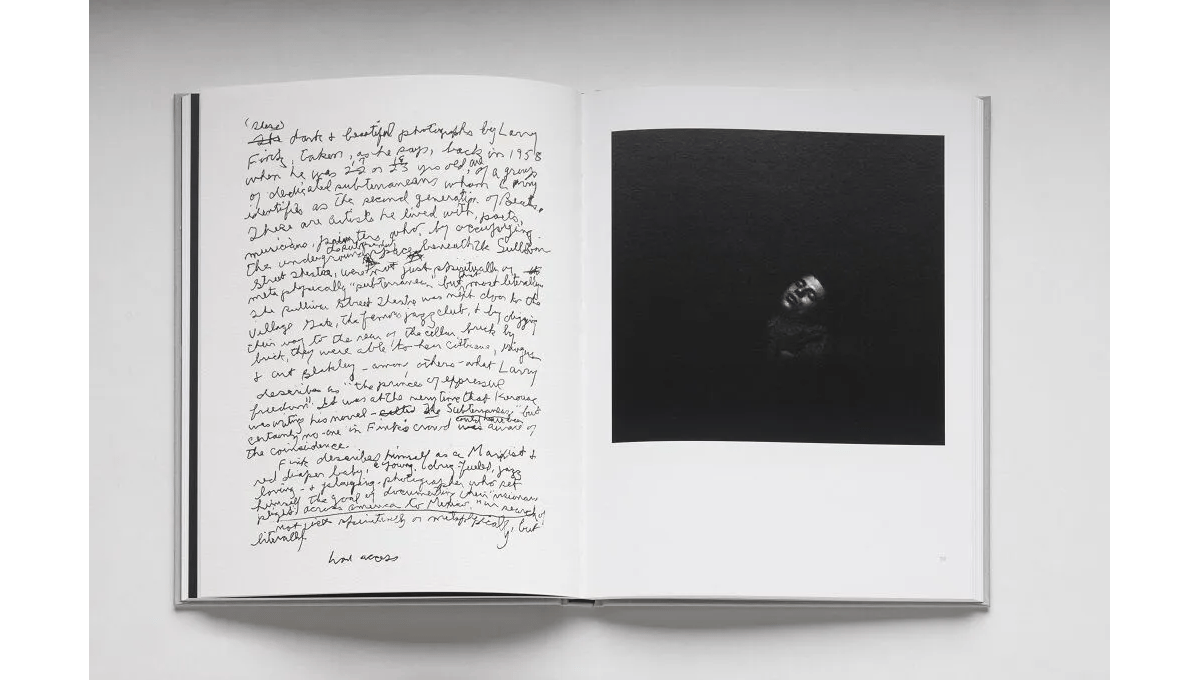 (These)
dark & beautiful photographs by Larry
Fink, taken, as he says, back in 1958
when he was 22 or 23 yrs old, are of a group
of dedicated subterraneans whom Larry
identifies as the second generation of Beats.
These are artists he lived with, poets,
musicians, painters, who, by occupying
the underground space beneath the Sullivan
Street Theatre, were not just spiritually or
metaphysically "subterranean" but most literally
The Sullivan Street Theatre was next door to the
Village Gate, the famous jazz club, & by digging
their way to the rear of the cellar brick by
brick, they were able to hear Coltrane, Mingus
& Art Blakley – among others – what Larry
describes as "the princes of expressive
freedom". It was at the very time that Kerouac
was writing his novel – called The Subterraneans" but
certainly no-one in Fink's crowd could have been aware of
the coincidence.
Fink describes himself as a Marxist &
red diaper baby, a young, drug-fueled, jazz
loving – & playing – photographer who set
himself the goal of documenting their visionary
flight across America to Mexico. "in search of
not just spiritually or metaphysically, but
literally.